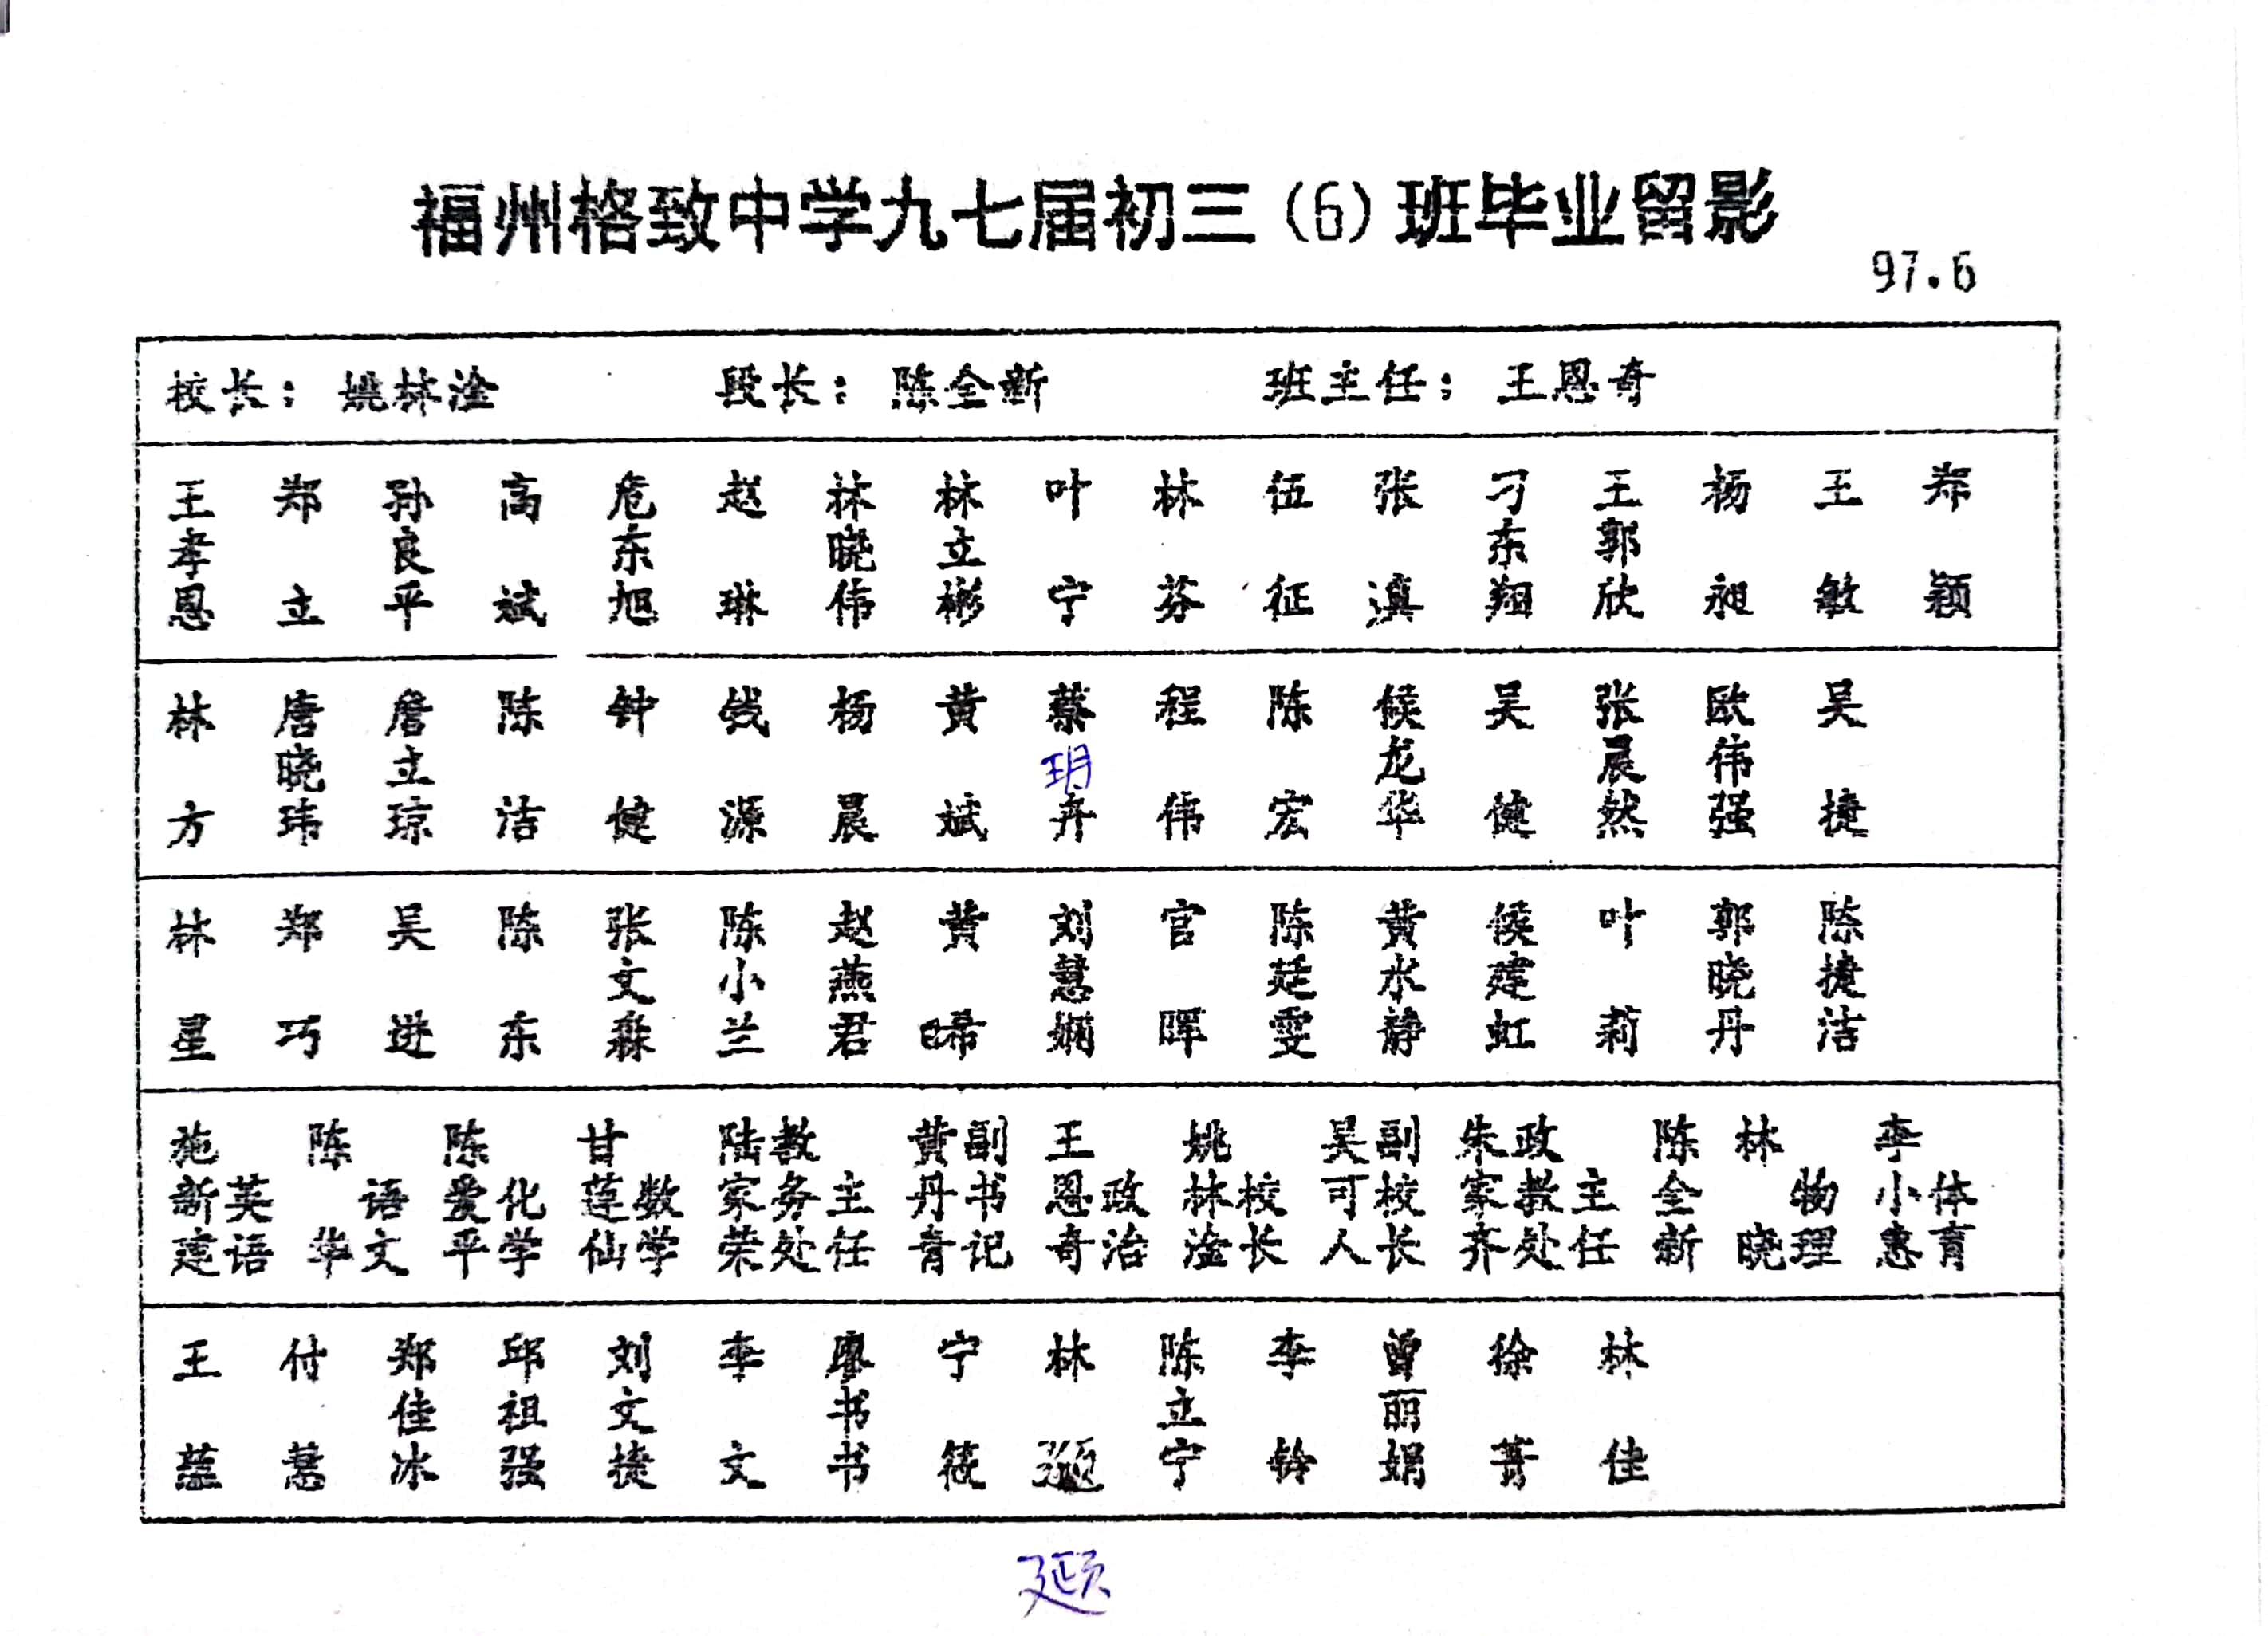 福州格致中学九七届初三(6)班毕业留影
97.6
校长：姚林淦 段长：陈全新 班主任：王恩奇
王孝恩 郑立 孙良平 高斌 危东旭 赵琳 林晓伟 林立彬 叶宁 林芬 伍征 张滇 刁东翔 王郭欣 杨昶 王敏 郑颖
林方 唐晓玮 詹立琼 陈洁 钟健 钱源 杨晨 黄斌 蔡玥丹 程伟 陈宏 候龙华 吴健 张晨然 欧伟强 吴捷
林星 郑巧 吴进 陈东 张文淼 陈小兰 赵燕君 黄 刘慧娴 官晖 陈莛雯 黄水静 候建虹 叶莉 郭晓丹 陈捷洁
施新建英语 陈华语文 陈爱平化学 甘莲仙数学 陆家荣教务处主任 黄丹青副书记 王恩奇政治 姚林淦校长 吴可人副校长 朱家齐政教处主任 陈全新 林晓物理 李小惠体育
王蕴 付慧 郑佳冰 邱祖强 刘文捷 李文 廖书书 宁筱 林 陈立宁 李铃 曾丽娟 徐菁 林佳